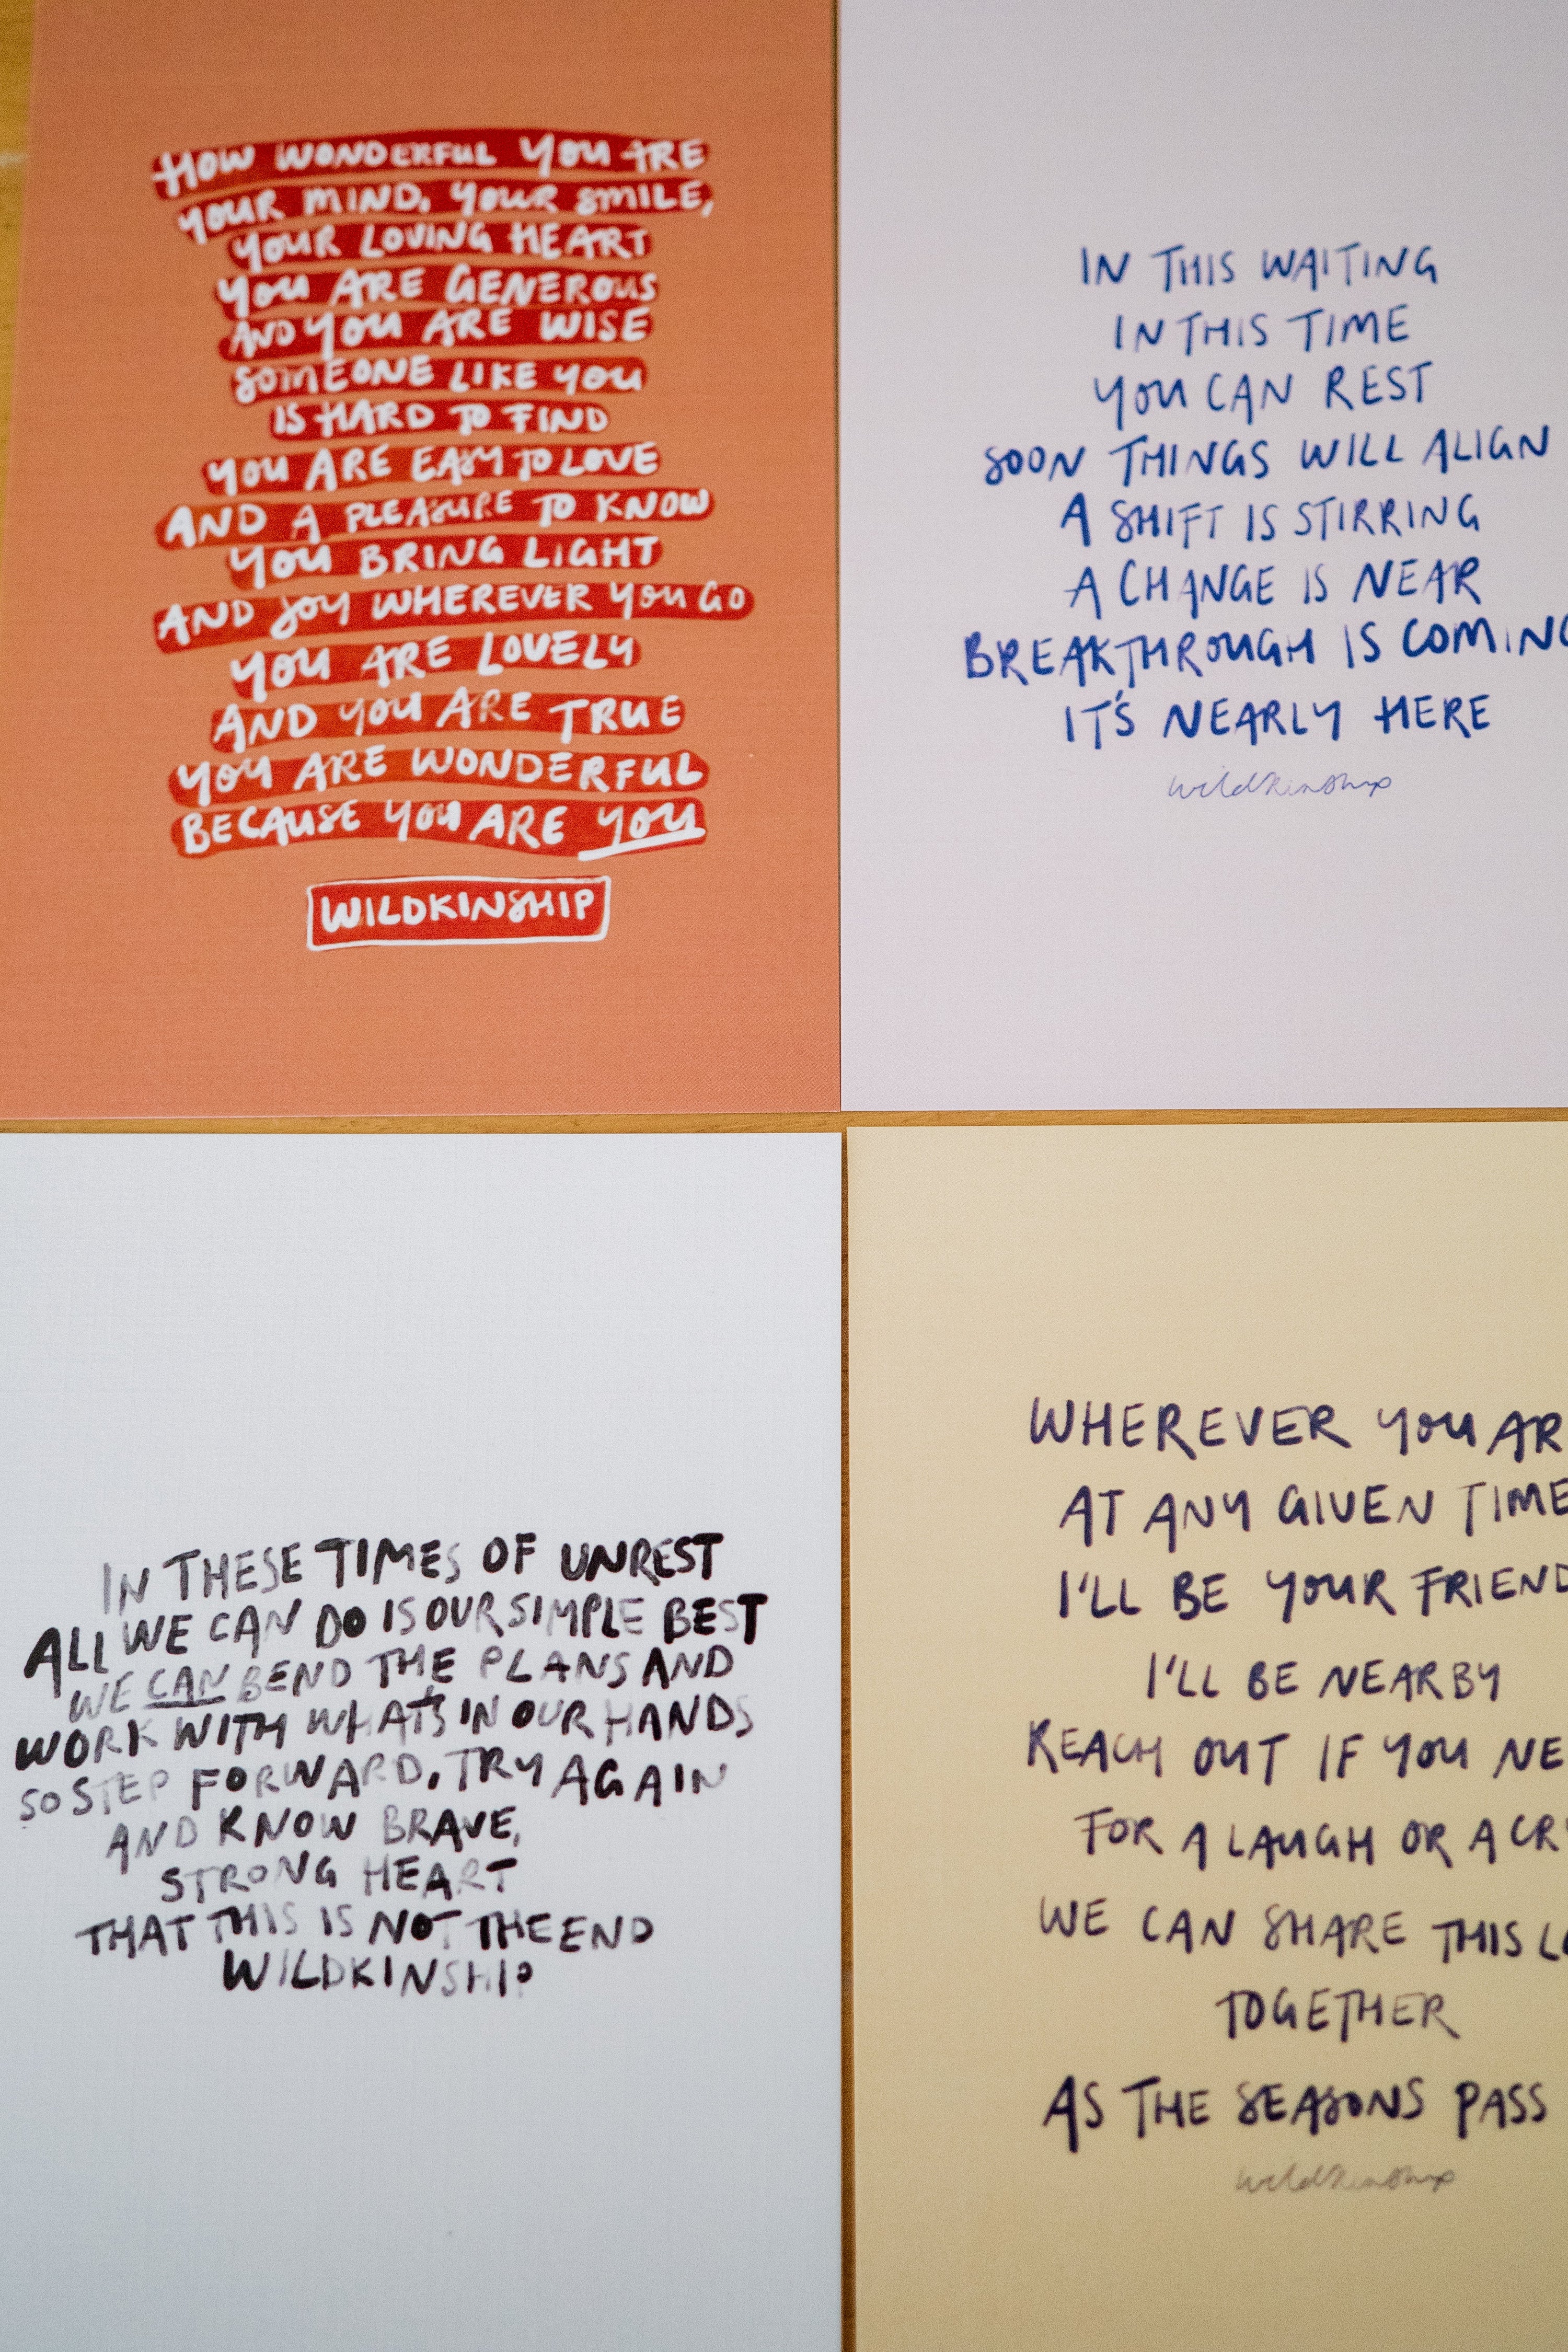 HOW WONDERFUL YOU ARE
YOUR MIND, YOUR SMILE,
YOUR LOVING HEART
YOU ARE GENEROUS
AND YOU ARE WISE
SOMEONE LIKE YOU
IS HARD TO FIND
YOU ARE EASY TO LOVE
AND A PLEASURE TO KNOW
YOU BRING LIGHT
AND JOY WHEREVER YOU GO
YOU ARE LOVELY
AND YOU ARE TRUE
YOU ARE WONDERFUL
BECAUSE YOU ARE YOU
WILDKINSHIP
IN THIS WAITING
IN THIS TIME
YOU CAN REST
SOON THINGS WILL ALIGN
A SHIFT IS STIRRING
A CHANGE IS NEAR
BREAKTHROUGH IS COMING
IT'S NEARLY HERE
wildkinship
IN THESE TIMES OF UNREST
ALL WE CAN DO IS OUR SIMPLE BEST
WE CAN BEND THE PLANS AND
WORK WITH WHAT'S IN OUR HANDS
SO STEP FORWARD. TRY AGAIN
AND KNOW BRAVE,
STRONG HEART
THAT THIS IS NOT THE END
WILDKINSHIP
WHEREVER YOU AR
AT ANY GIVEN TIME
I'LL BE YOUR FRIEND
I'LL BE NEARBY
REACH OUT IF YOU NE
FOR A LAUGH OR A CRY
WE CAN SHARE THIS
TOGETHER
AS THE SEASONS PASS
wildkinship